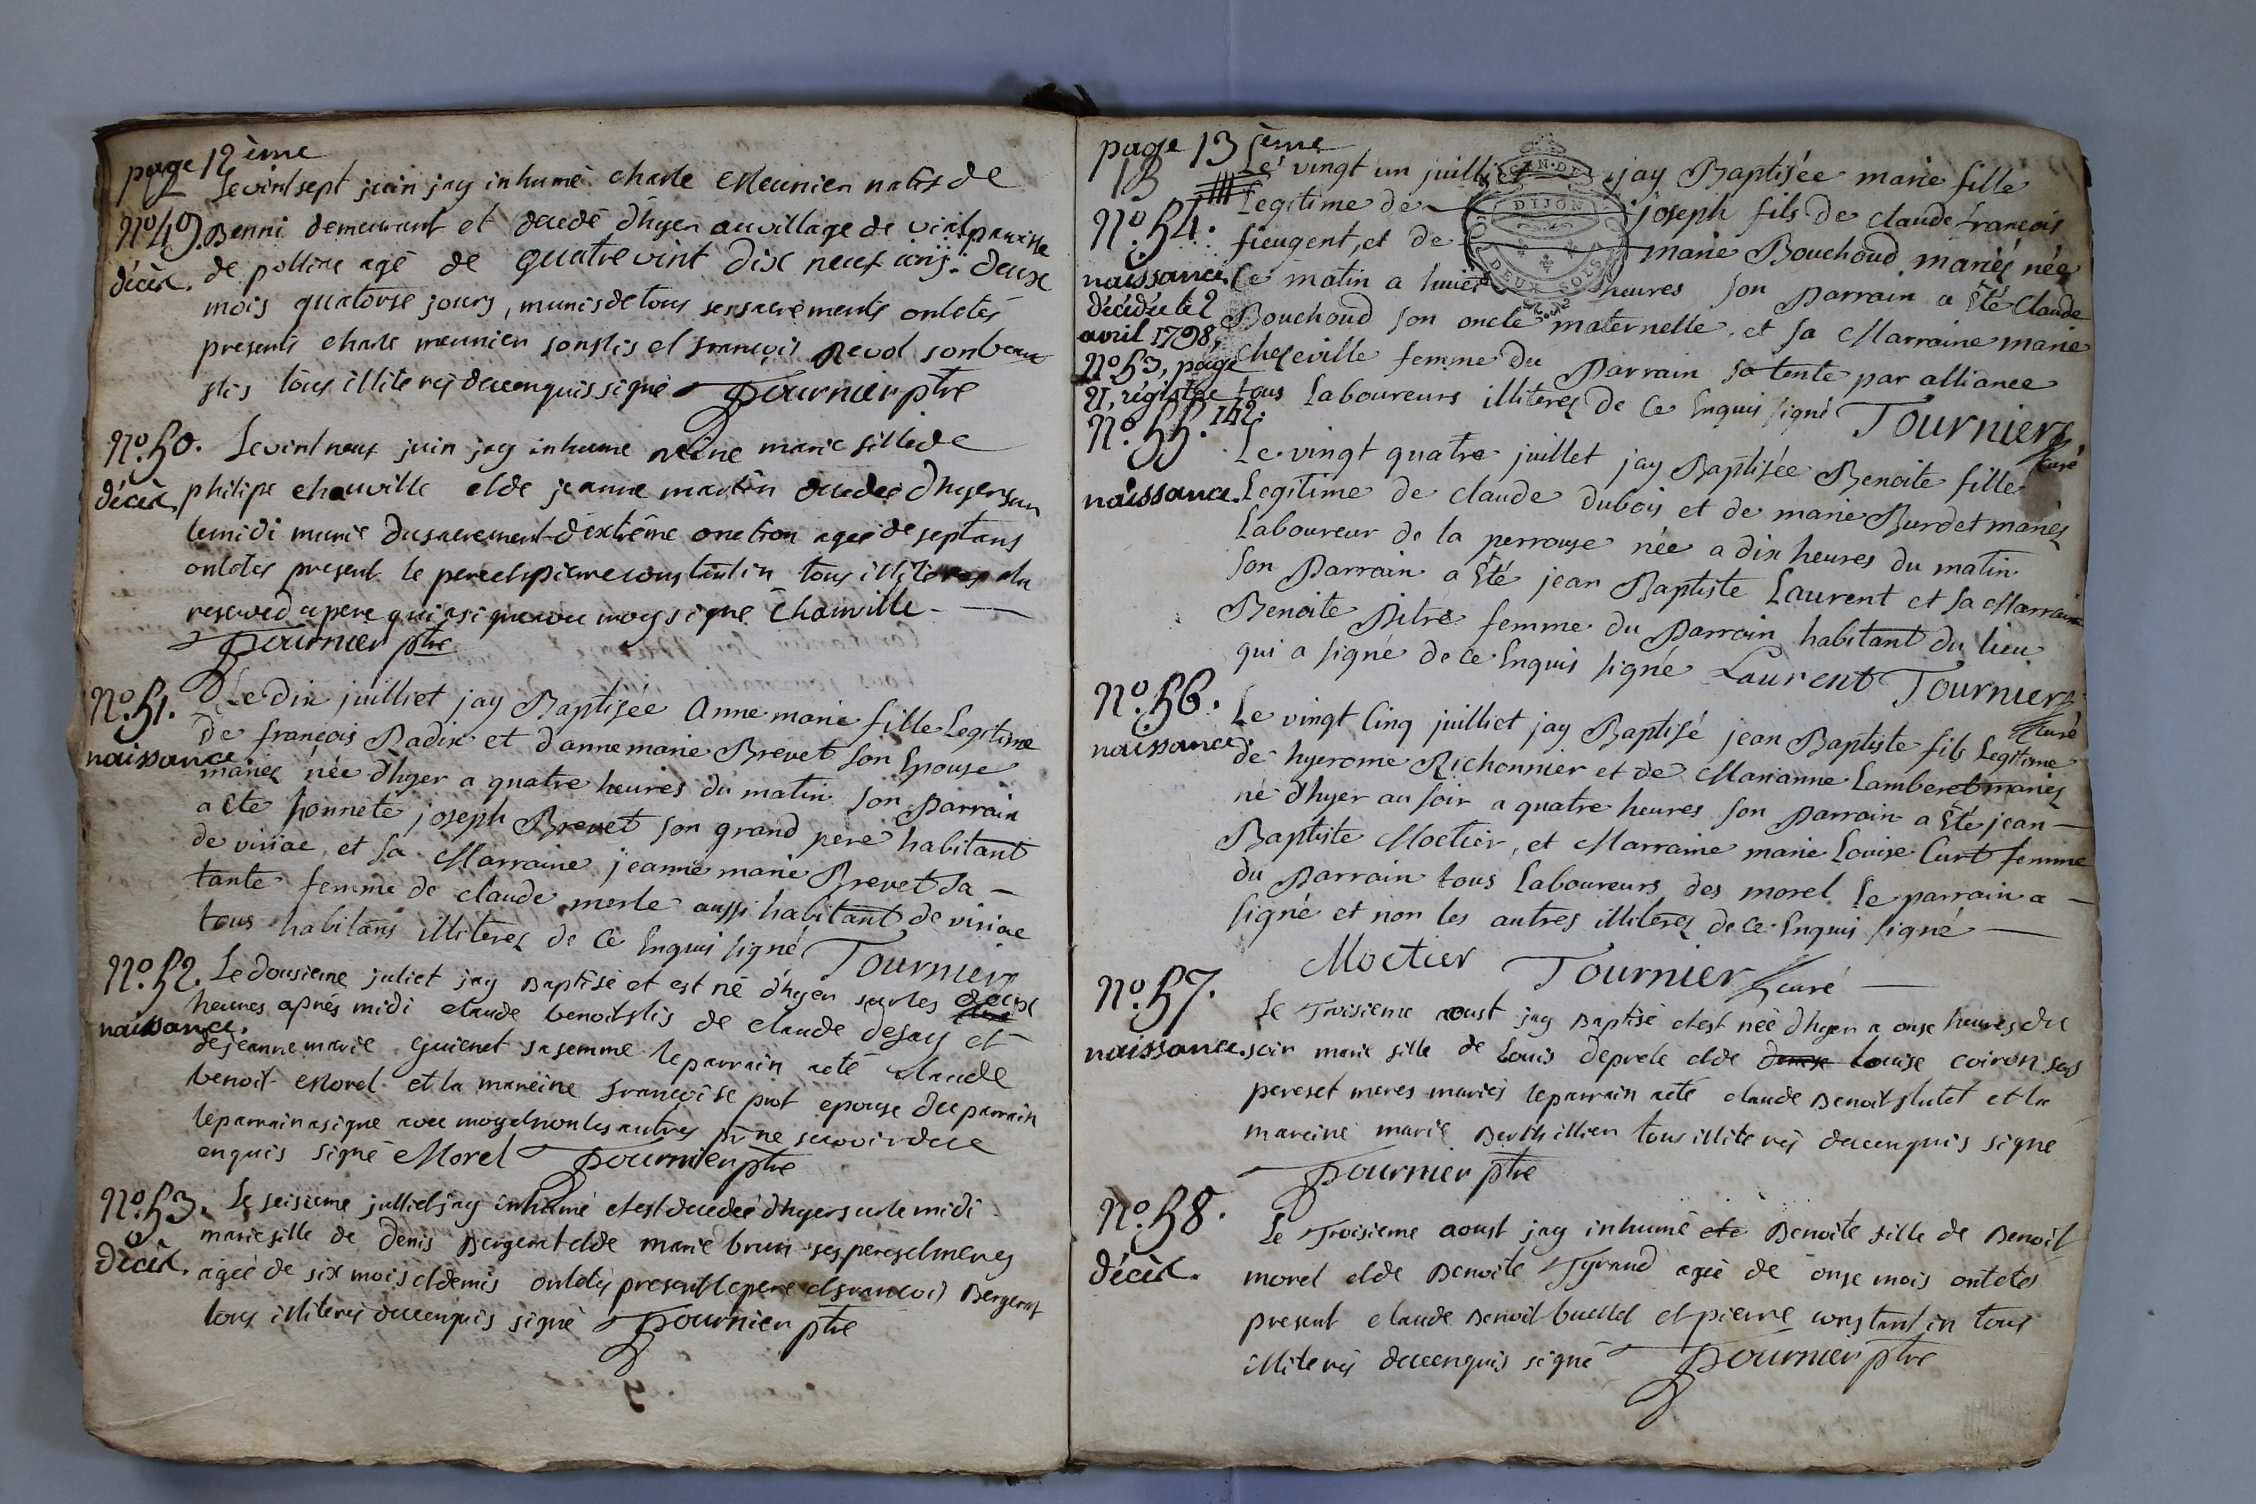 page 12ème
Le vint sept juin jay inhumé charle Meunier natif de
No. 49. Benni demeurant et decedé d'hyer au village de vint paroisse
décès. de pollini agé de quatre vint dix neuf ans deux
mois quatorse jours, munis de tous ses sacrements ont etés
presents charle meunier son fils et françois Revol son beau
fils tous illiterés de ce enquis signé Tournier ptre
No. 50. Le vint neuf juin jay inhumé reine marie fille de
décès. philipe chauville et de jeanne martin decedée d'hyer sur
le midi munie du sacrement d'extrême onction agée de sept ans
ont etes present le pere et pierre constantin tous illiteres a la
reserve du pere qui a signé avec moy signé Chauville
Tournier ptre
No. 51. Le dix juilliet jay Baptisée Anne marie fille Legitime
naissance de françois Radix et d'anne marie Brevet son Epouse
mariez née d'hyer a quatre heures du matin son Parrain
a Eté honnete joseph Brevet son grand pere habitant
de viriac et sa Marraine jeanne marie Brevet sa
tante femme de claude merle aussi habitant de viriac
tous habitans illiterez de Ce Enquis signé Tournier
No. 52. Le dousieme juliet jay Baptisé et est né d'hyer sur les deux
naissance. heures aprés midi claude benoit fils de claude desay et
de jeanne marie guienet sa femme le parrain a eté claude
benoit Morel et la mareine françoise piot epouse du parrain
le parrain a signé avec moy et non les autres pr ne scavoir de ce
enquis signé Morel Tournier ptre
No. 53. Le seisieme julliet jay inhumé et est decedée d'hyer sur le midi
décès. marie fille de denis Bergerat et de marie brun ses peres et meres
agée de six mois et demis ont etés present le pere et françois Bergerat
tous illiterés de ce enquis signé Tournier ptre
page 13ème
13 Le vingt un juilliet jay Baptisée marie fille
No. 54. Legitime de joseph fils de claude françois
fieugent, et de marie Bouchoud mariés née
naissance. Ce matin a huict heures son Parrain a Eté Claude
décédée le 2 Bouchoud son oncle maternelle et sa Marraine marie
avril 1798, cheleville femme du Parrain sa tente par alliance
No 53, page 21, régistre 142. tous Laboureurs illiterez de Ce Enquis signé Tournier curé
No. 55. Le vingt quatre juillet jay Baptisée Benoite fille
naissance. Legitime de claude dubois et de marie Burdet mariez
Laboureur de la perrouse née a dix heures du matin
son Parrain a Eté jean Baptiste Laurent et sa Marraine
Benoite Pitre femme du Parrain habitant du lieu
qui a signé de Ce Enquis signé Laurent Tournier curé
No. 56. Le vingt Cinq juilliet jay Baptisé jean Baptiste fils Legitime
naissance de hyerome Richonnier et de Marianne Lamberet mariez
né d'hyer au soir a quatre heures son Parrain a Eté jean
Baptiste Moetier, et Marraine marie Louise Curt femme
du Parrain tous Laboureurs des morel Le parrain a
signé et non les autres illiterez de Ce Enquis signé
Moetier Tournier curé
No. 57. Le Troisieme aoust jay Baptisé et est neé d'hyer a onse heures du
naissance. soir marie fille de Louis deprele et de Louise coiron ses
peres et meres mariés le parrain a eté claude Benoit flutet et la
mareine marie Berthillier tous illiterés de ce enquis signe
Tournier ptre
No. 58. Le Troisieme aoust jay inhumé Benoite fille de Benoit
décès. morel et de Benoite Tyrand agée de onse mois ont etes
present claude Benoit buellet et pierre constantin tous
illiterés de ce enquis signé Tournier ptre
GEN. DE DIJON
DEUX SOLS